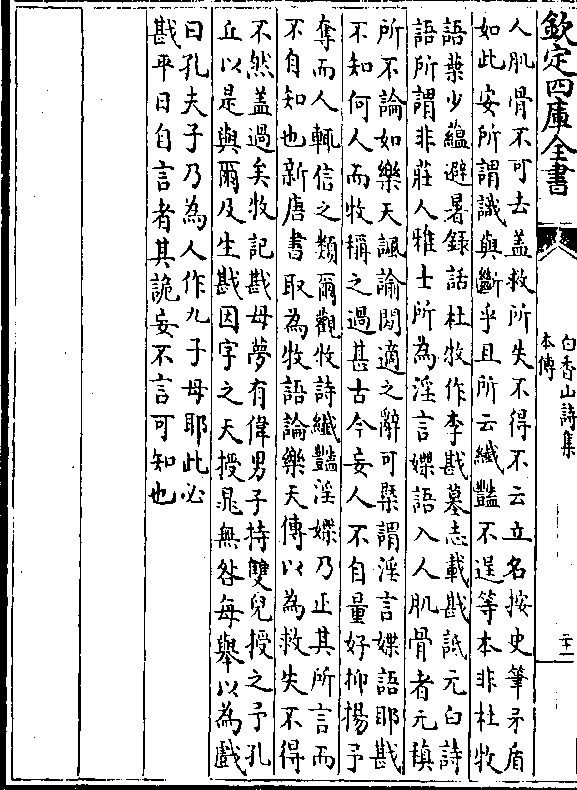 欽定四庫全書
白香山詩集
本傳
二十一
人肌骨不可去蓋救所失不得不云立名按史筆矛盾
如此安所謂識與斷乎且所云纖豔不逞等本非杜牧
語葉少蘊避暑録話杜牧作李戡墓志載戡詆元白詩
語所謂非莊人雅士所為淫言媟語入人肌骨者元稹
所不論如樂天諷諭閑適之辭可槩謂淫言媟語耶戡
不知何人而牧稱之過甚古今妄人不自量好抑揚予
奪而人輒信之類爾觀牧詩纖豔淫媟乃正其所言而
不自知也新唐書取為牧語論樂天傳以為救失不得
不然蓋過矣牧記戡母夢有偉男子持雙兒授之予孔
丘以是與爾及生戡因字之天授晁無咎每舉以為戲
曰孔夫子乃為人作九子母耶此必
戡平日自言者其詭妄不言可知也